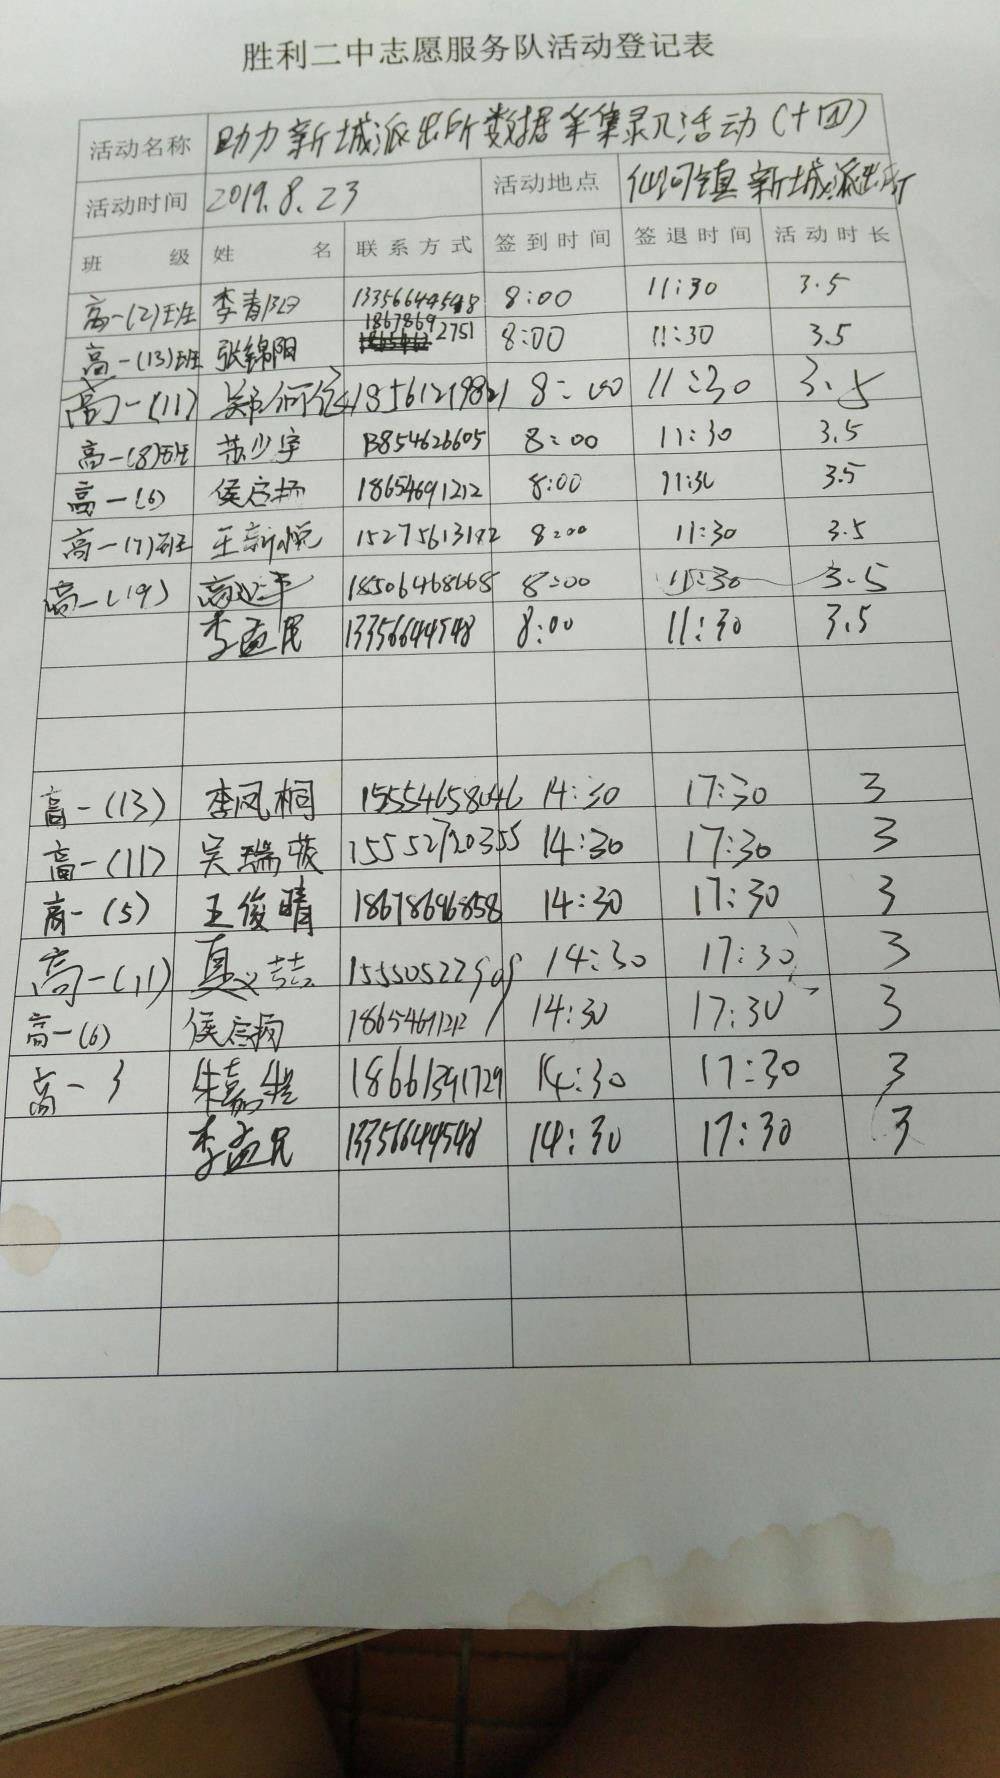 胜利二中志愿服务队活动登记表
活动名称 助力新城派出所数据采集录入活动(十团)
活动时间 2019.8.23 活动地点 仙河镇新城派出所
班级 姓名 联系方式 签到时间 签退时间 活动时长
高一(2)班 李青阳 13356644548 8:00 11:30 3.5
高一(13)班 张锦阳 18678692751 8:00 11:30 3.5
高一(11) 18561219821 8:00 11:30 3.5
高一(8)班 苏少宇 13854626605 8:00 11:30 3.5
高一(6) 侯启扬 18654691212 8:00 11:30 3.5
高一(7)班 王新悦 15275613182 8:00 11:30 3.5
高一(19) 18506468668 8:00 11:30 3.5
李孟民 13356644548 8:00 11:30 3.5
高一(13) 李凤桐 15554658046 14:30 17:30 3
高一(11) 吴瑞荻 15552720355 14:30 17:30 3
高一(5) 王俊晴 18678696858 14:30 17:30 3
高一(11) 15550522909 14:30 17:30 3
高一(6) 侯启扬 18654691212 14:30 17:30 3
高一3 朱嘉铠 18661391729 14:30 17:30 3
李孟民 13356644548 14:30 17:30 3